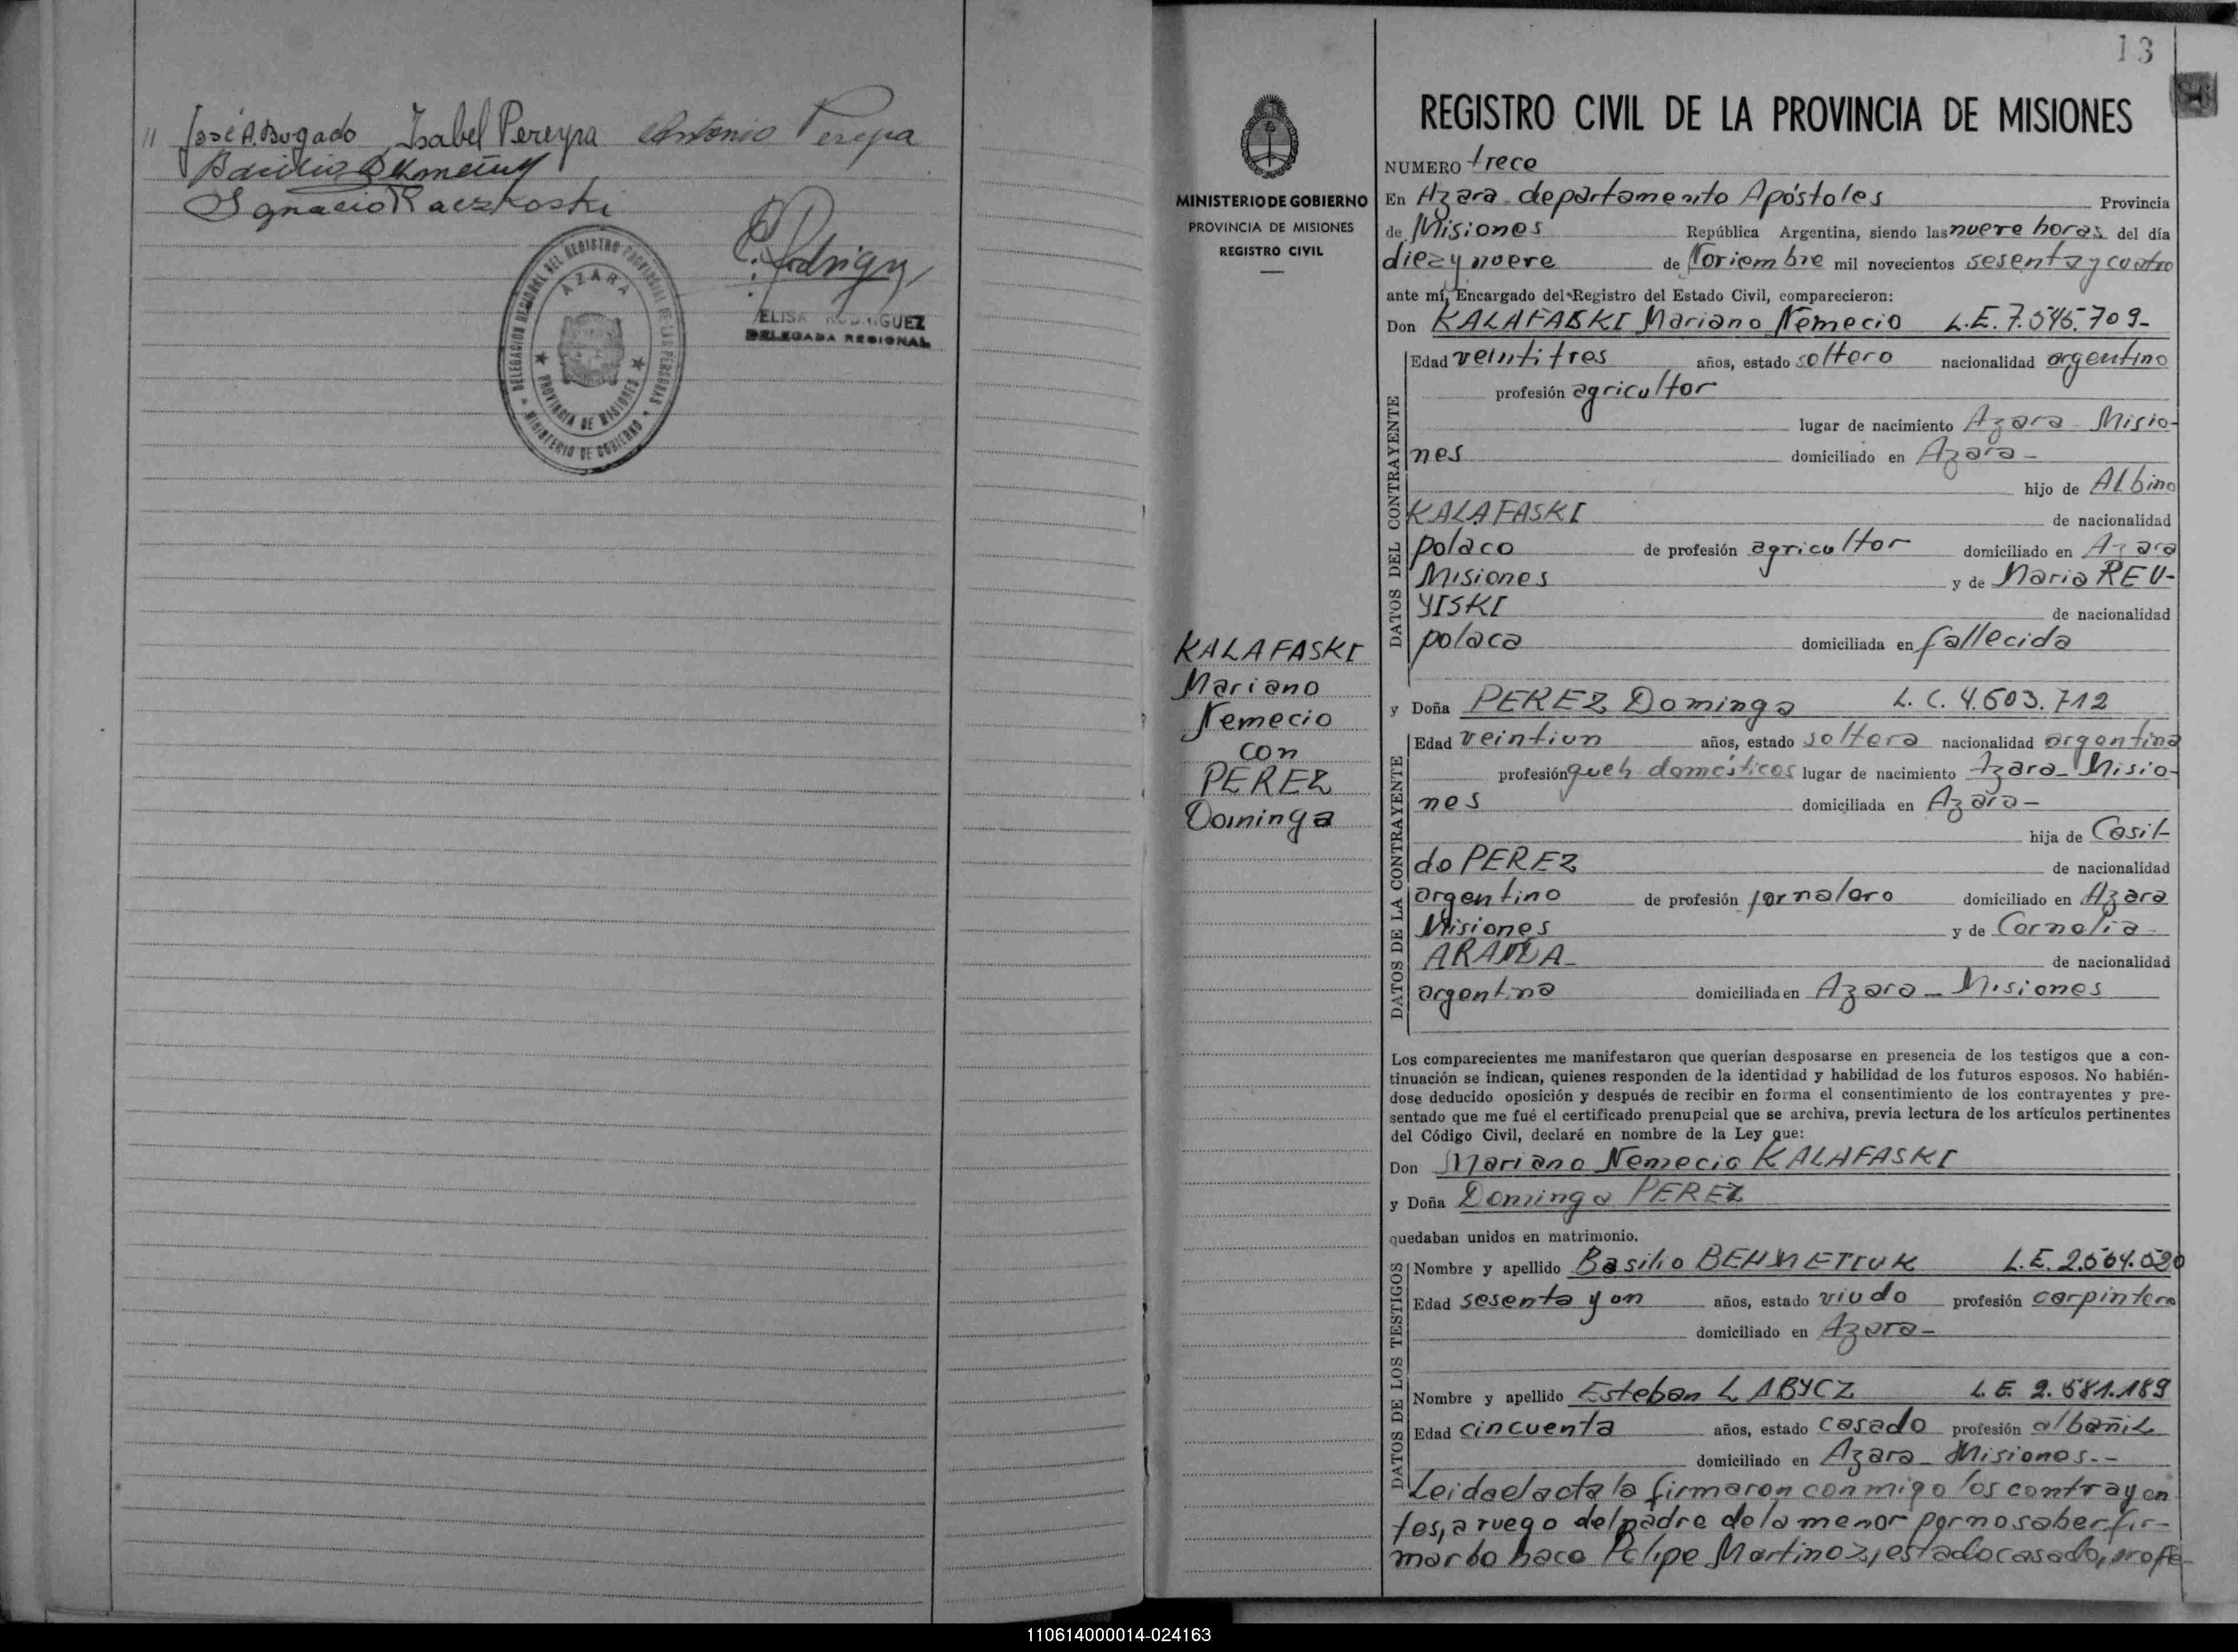 " José A. Bogado Isabel Pereyra Antonio Pereyra
Basilio
Ignacio Raczkoski
DELEGACION REGIONAL DEL REGISTRO PROVINCIAL DE LAS PERSONAS
AZARA
PROVINCIA DE MISIONES
MINISTERIO DE GOBIERNO
E. Rodriguez
ELISA RODRIGUEZ
DELEGADA REGIONAL
13
MINISTERIO DE GOBIERNO
PROVINCIA DE MISIONES
REGISTRO CIVIL
KALAFASKI
Mariano
Nemecio
con
PEREZ
Dominga
REGISTRO CIVIL DE LA PROVINCIA DE MISIONES
NUMERO trece
En Azara departamento Apóstoles Provincia
de Misiones República Argentina, siendo las nueve horas del día
diez y nueve de Noviembre mil novecientos sesenta y cuatro
ante mí, Encargado del Registro del Estado Civil, comparecieron:
Don KALAFASKI Mariano Nemecio L.E. 7.545.709-
DATOS DEL CONTRAYENTE
Edad veintitres años, estado soltero nacionalidad argentino
profesión agricultor
lugar de nacimiento Azara Misio-
nes domiciliado en Azara-
hijo de Albino
KALAFASKI de nacionalidad
polaco de profesión agricultor domiciliado en Azara
Misiones y de Maria REU-
YISKI de nacionalidad
polaca domiciliada en fallecida
y Doña PEREZ Dominga L.C. 4.603.712
DATOS DE LA CONTRAYENTE
Edad veintiun años, estado soltera nacionalidad argentina
profesión queh domésticos lugar de nacimiento Azara-Misio-
nes domiciliada en Azara-
hija de Casil-
do PEREZ de nacionalidad
argentino de profesión jornalero domiciliado en Azara
Misiones y de Cornelia
de nacionalidad
argentina domiciliada en Azara-Misiones
Los comparecientes me manifestaron que querían desposarse en presencia de los testigos que a con-
tinuación se indican, quienes responden de la identidad y habilidad de los futuros esposos. No habién-
dose deducido oposición y después de recibir en forma el consentimiento de los contrayentes y pre-
sentado que me fué el certificado prenupcial que se archiva, previa lectura de los artículos pertinentes
del Código Civil, declaré en nombre de la Ley que:
Don Mariano Nemecio KALAFASKI
y Doña Dominga PEREZ
quedaban unidos en matrimonio.
DATOS DE LOS TESTIGOS
Nombre y apellido Basilio BEHMETIUK L.E. 2.504.020
Edad sesenta y un años, estado viudo profesión carpintero
domiciliado en Azara-
Nombre y apellido Esteban LABYCZ L.E. 2.581.189
Edad cincuenta años, estado casado profesión albañil
domiciliado en Azara-Misiones.--
Leida el acta la firmaron conmigo los contrayen
tes, a ruego del padre de la menor por no saber fir-
mar lo hace Felipe Martinez, estado casado, profe-
110614000014-024163